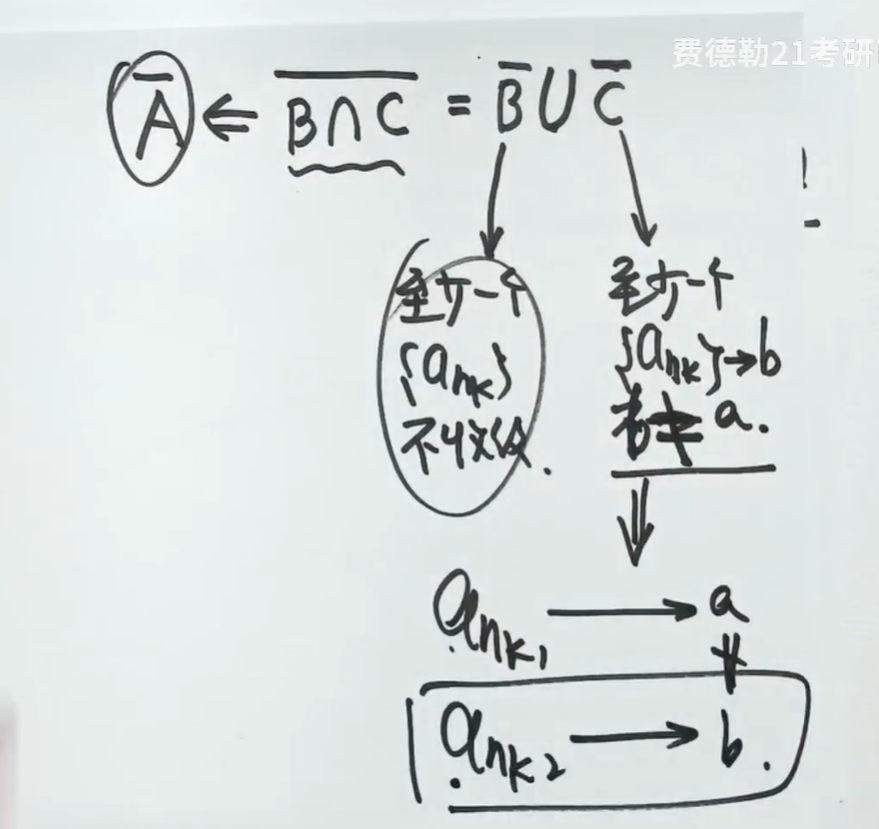 费德勒21考研
Ā ⇐ \overline{B∩C} = B̄ ∪ C̄
至少一个
{a_{n_k}}
不收敛.
至少一个
{a_{n_k}}→b
b≠a.
a_{n_{k_1}} ⟶ a
∦
a_{n_{k_2}} ⟶ b.